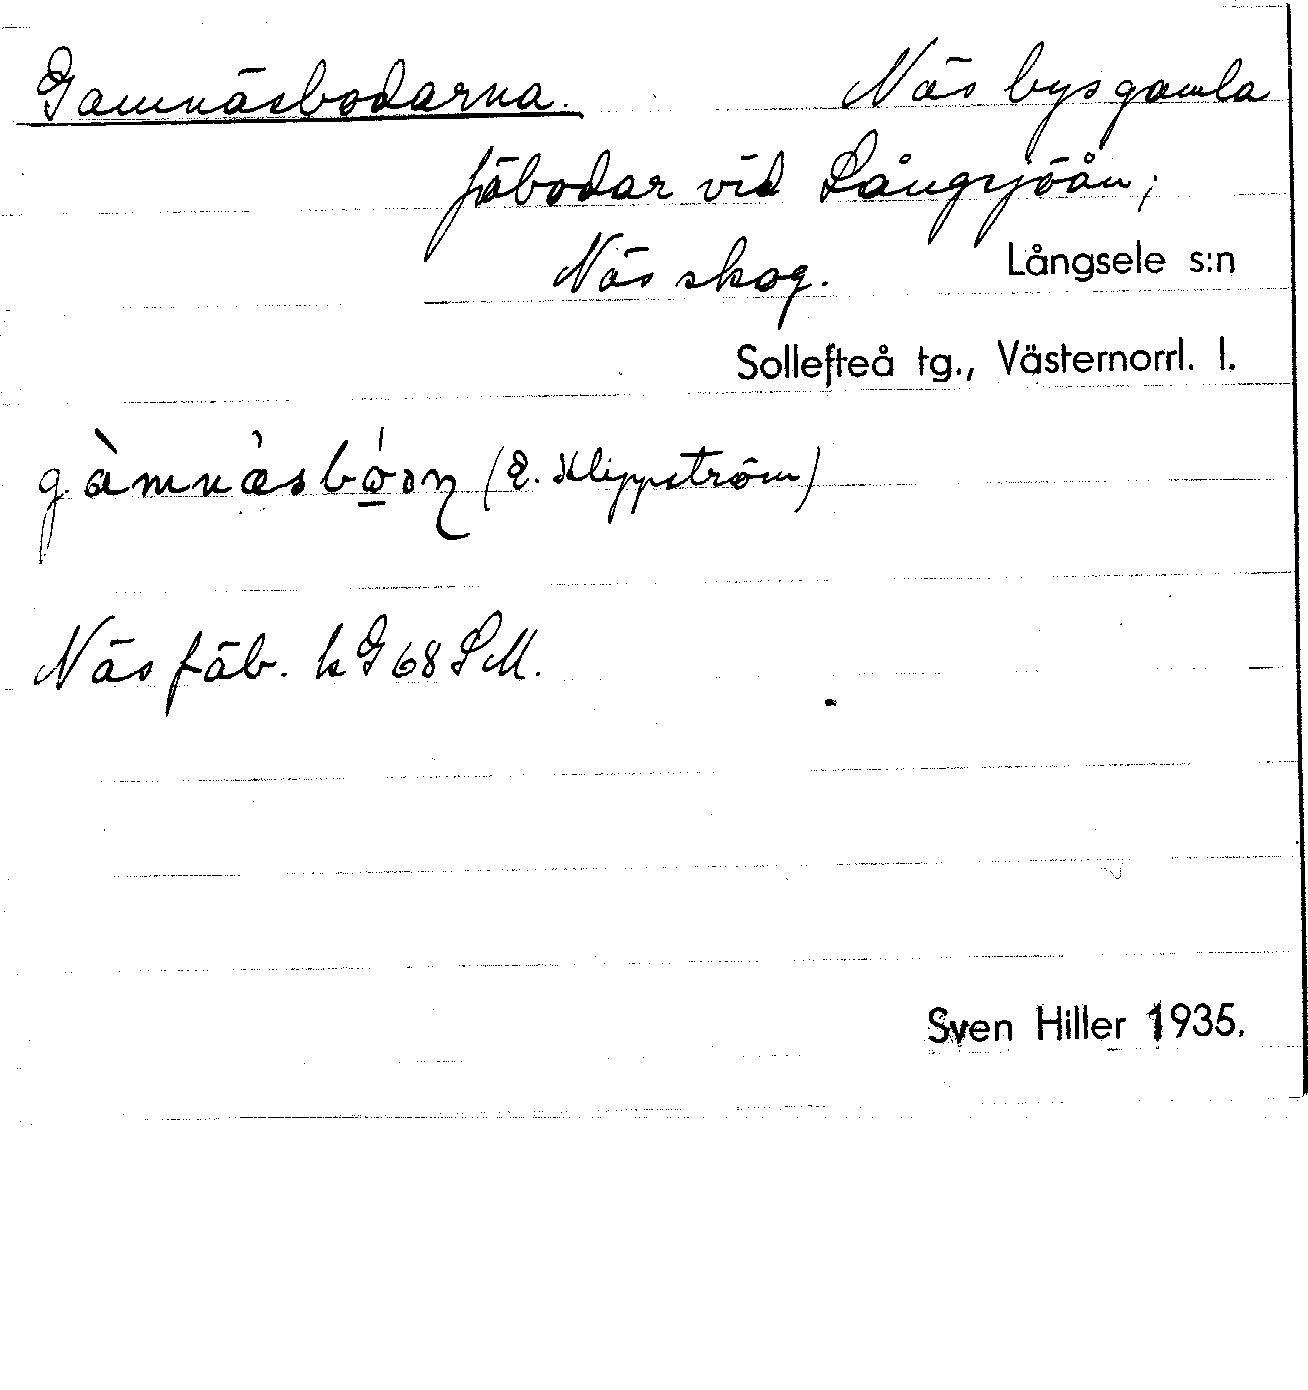 Gamnäsbodarna. Näs bys gamla
fäbodar vid Långsjöån;
Näs skog. Långsele s:n
Sollefteå tg., Västernorrl. l.
(E. Klippström)
Näs fäb. k G 68 SM.
Sven Hiller 1935.